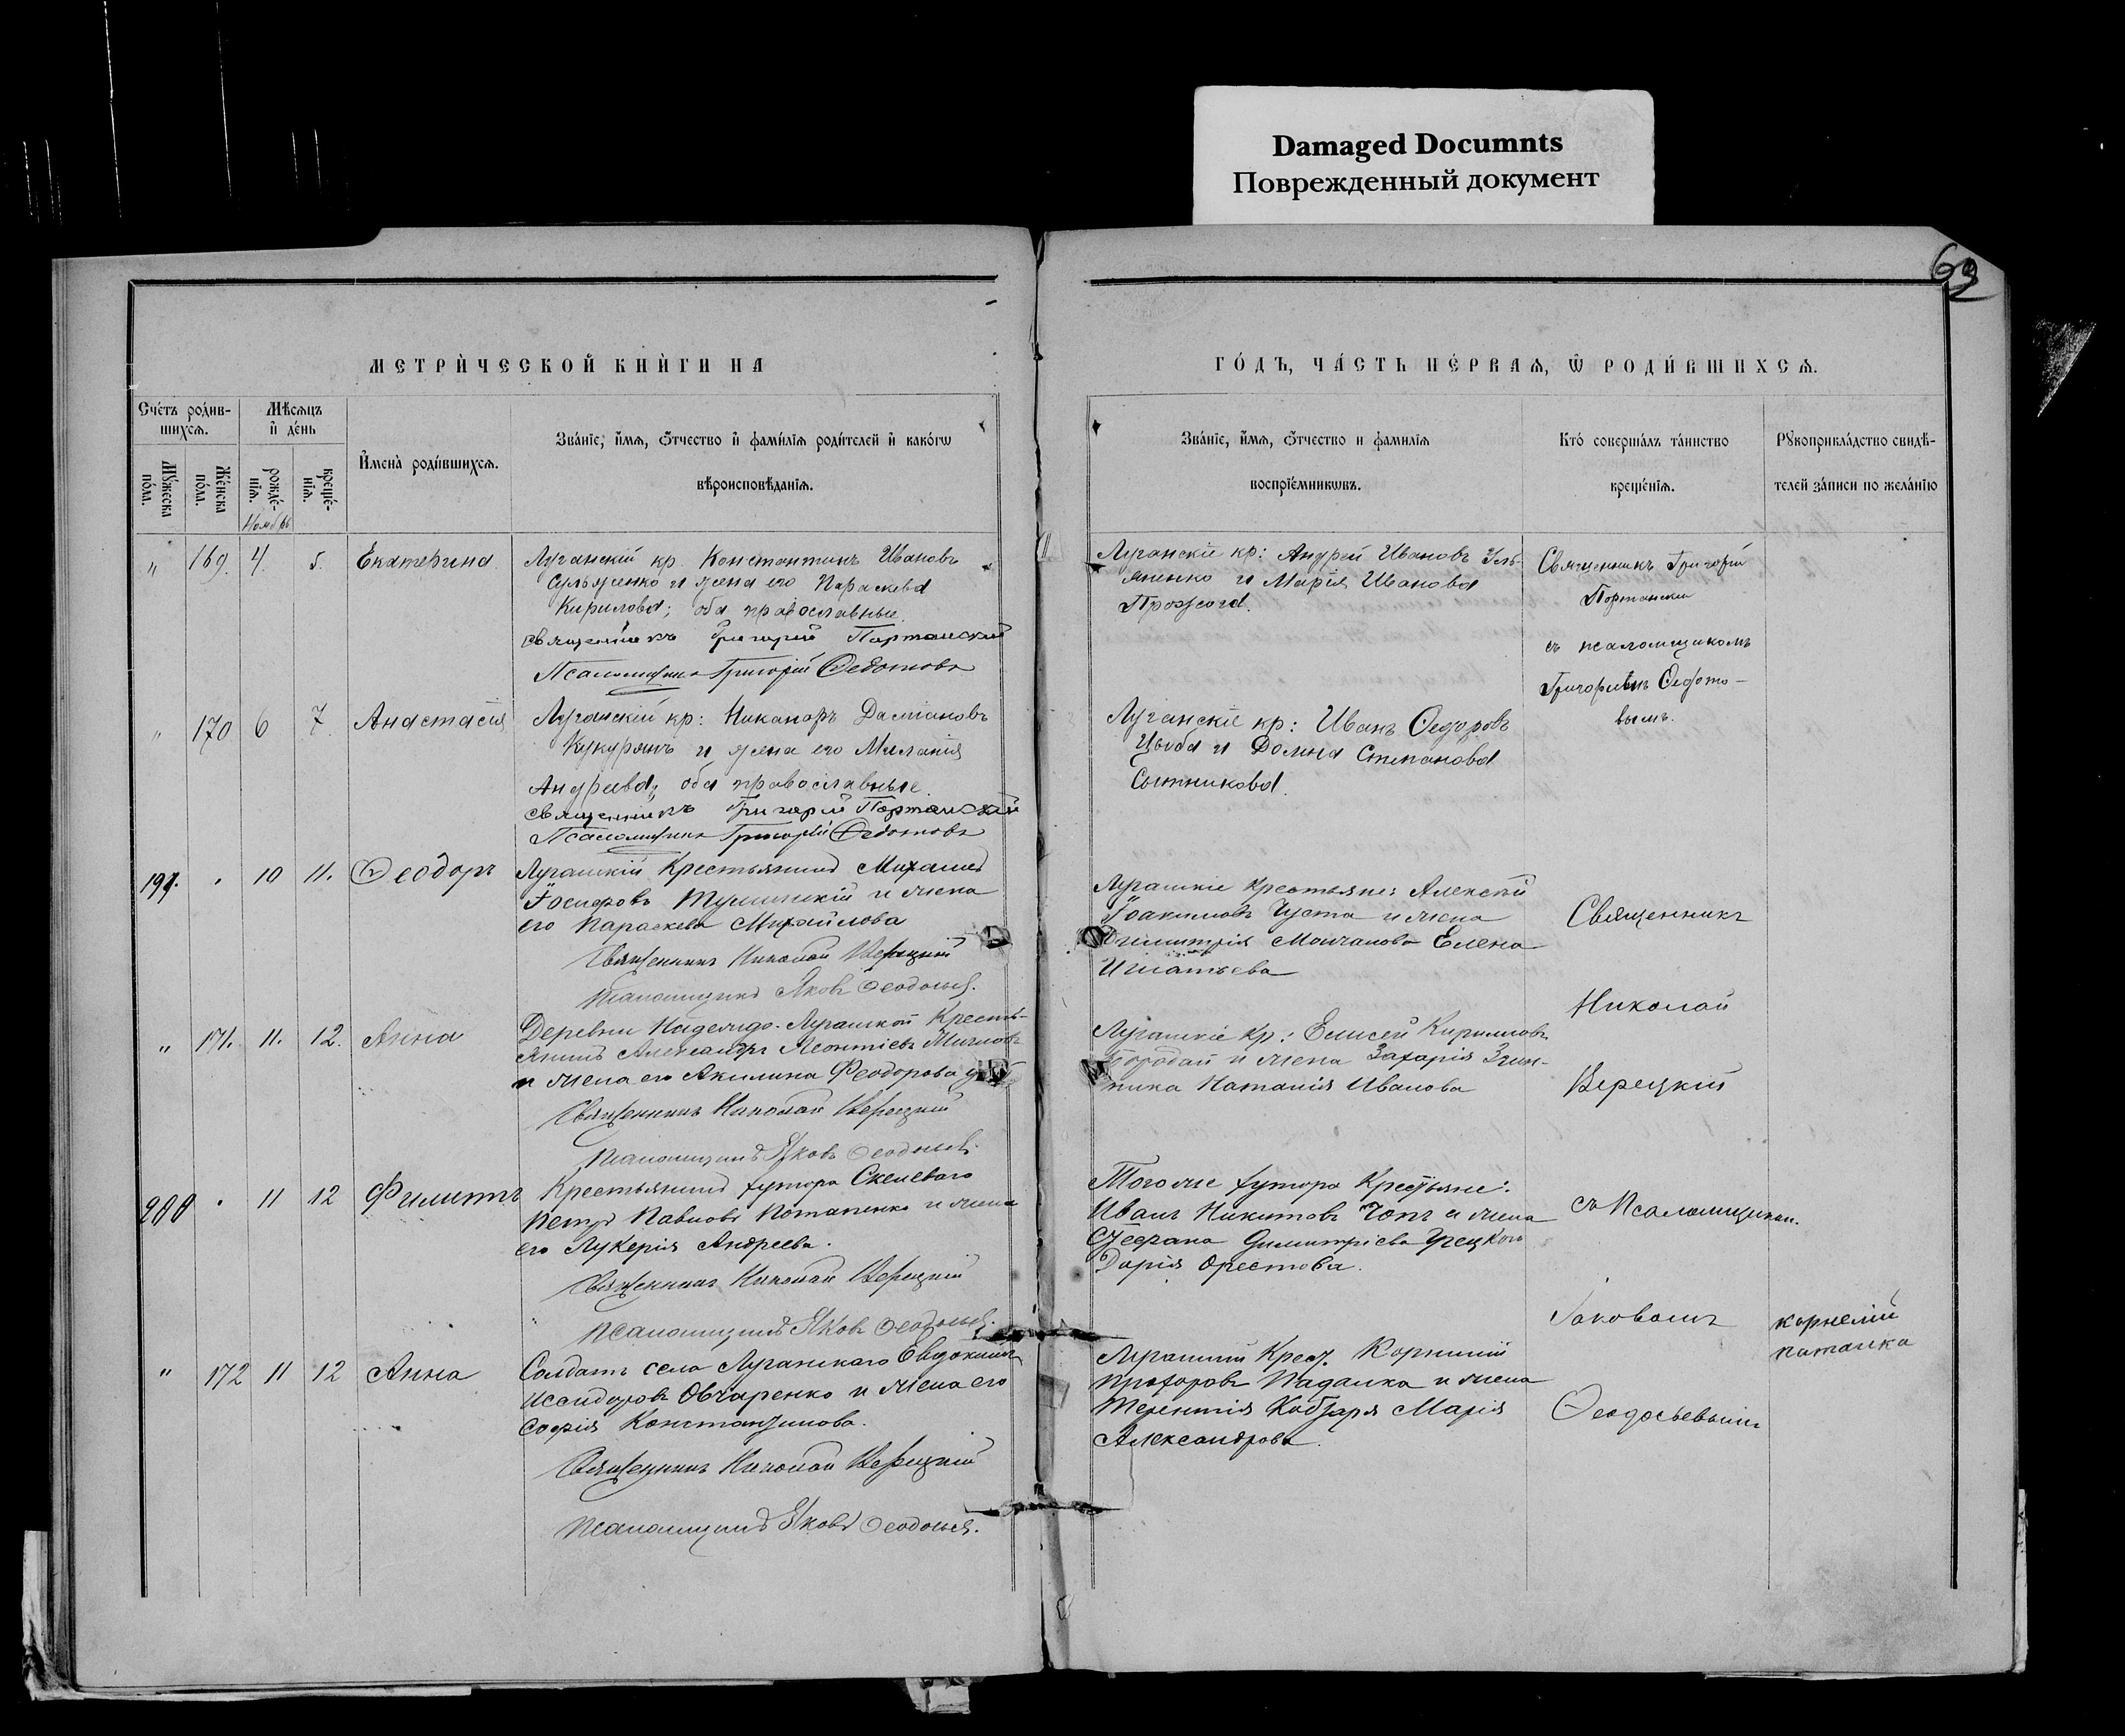 Damaged Documnts
Поврежденный документ
69
МЕТРИ́ЧЕСКОЙ КНИ́ГИ НА
ГО́ДЪ, ЧА́СТЬ ПЕ́РВАѦ, Ѿ РОДИ́ВШИХСѦ.
Сче́тъ роди́в-
шихсѧ.
Мѣ́сѧцъ
и҆ де́нь
Мꙋ́жеска
по́ла.
Же́нска
по́ла.
рожде́-
нїѧ.
креще́-
нїѧ.
Ноябрь
И҆мена̀ роди́вшихсѧ.
Зва́нїе, и҆́мѧ, ѻ҆́тчество и҆ фами́лїѧ роди́телей и҆ како́гѡ
вѣроисповѣ́данїѧ.
Зва́нїе, и҆́мѧ, ѻ҆́тчество и фами́лїѧ
воспрїе́мникѡвъ.
Кто́ соверша́лъ та́инство
креще́нїѧ.
Рꙋкоприкла́дство свидѣ́-
телей за́писи по жела́нїю
" 169. 4. 5. Екатерина
Луганскій кр. Константинъ Ивановъ
и жена его Параскева
Кирилова; оба православные.
Священникъ Григорій Портанскій
Псаломщикъ Григорій Ѳедотовъ
Луганскіе кр: Андрей Ивановъ Уль-
яненко и Марія Иванова
Священникъ Григорій
Портанскій
съ псаломщикомъ
Григоріемъ Ѳедото-
вымъ.
" 170 6 7. Анастасія
Луганскій кр: Никаноръ Даміановъ
и жена его Меланія
Андреева, оба православные.
Священникъ Григорій Портанскій
Псаломщикъ Григорій Ѳедотовъ
Луганскіе кр: Иванъ Ѳедоровъ
Цыба и Домна Степанова
Сытникова.
199. " 10 11. Ѳеодоръ
Луганскій Крестьянинъ Михаилъ
Іосифовъ и жена
его Параскева Михайлова
Священникъ Николай Верецкій
Псаломщикъ Яковъ Ѳеодосьев.
Луганскіе крестьяне: Алексѣй
Іоакимовъ Чуста и жена
Димитрія Молчанова Елена
Игнатьева
Священникъ
Николай
Верецкій
съ Псаломщиком.
Іаковомъ
Ѳеодосьевымъ
" 171. 11. 12. Анна
Деревни Надеждо-Луганской Кресть-
янинъ Александръ Леонтіевъ
и жена его Акилина Феодорова
Священникъ Николай Верецкій
Псаломщикъ Яковъ Ѳеодосьев.
Луганскіе кр: Елисей Кириловъ
Бородай и жена Захарія
Наталія Иванова
200 " 11 12 Филиппъ
Крестьянинъ хутора Скелеваго
Петръ Павловъ Потапенко и жена
его Лукерія Андреева.
Священникъ Николай Верецкій
Псаломщикъ Яковъ Ѳеодосьев.
Того же хутора Крестьяне:
Иванъ Никитовъ Чопъ и жена
Стефана Димитріева
Дарія Орестова.
" 172 11 12 Анна
Солдатъ села Луганскаго Евдокимъ
Исидоровъ Овчаренко и жена его
Софія Константинова.
Священникъ Николай Верецкій
Псаломщикъ Яковъ Ѳеодосьев.
Луганскій Крест. Корнилій
Прохоровъ Падалка и жена
Терентія Кобзаря Марія
Александрова.
корнелій